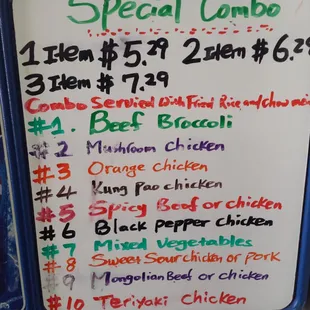 Special Combo
1 Item $5.29 2 Item $6.29
3 Item $7.29
Combo Serviced With Fried Rice and chow mein
#1. Beef Broccoli
#2 Mushroom chicken
#3 Orange chicken
#4 Kung pao chicken
#5 Spicy Beef or chicken
#6 Black pepper chicken
#7 Mixed vegetables
#8 Sweet Sour chicken or pork
#9 Mongolian Beef or chicken
#10 Teriyaki chicken